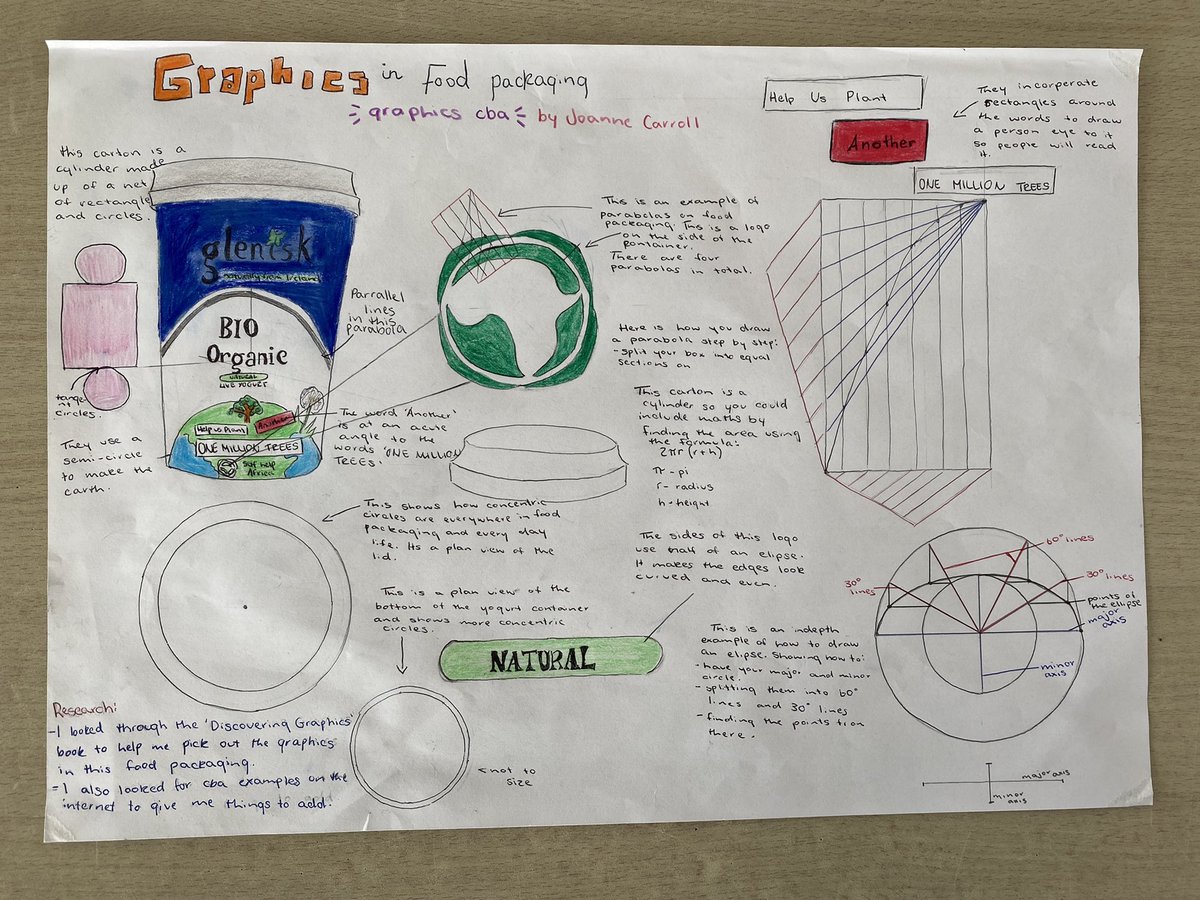 Graphics in Food packaging
graphics cba by Joanne Carroll
this carton is a
cylinder made
up of a net
of rectangle
and circles.
tange
nt
circles.
They use a
semi-circle
to make the
earth.
glenisk
naturally from Ireland
BIO
Organic
NATURAL
LIVE YOGURT
Help us Plant
Another
ONE MILLION TREES
Self help
Africa
Parrallel
lines
in this
parabola
The word 'Another'
is at an acute
angle to the
words 'ONE MILLION
TREES.'
This is an example of
parabolas on food
packaging. This is a logo
on the side of the
container.
There are four
parabolas in total.
Here is how you draw
a parabola step by step:
- split your box into equal
sections on
This carton is a
cylinder so you could
include maths by
finding the area using
the formula:
2πr(r+h)
π - pi
r - radius
h - height
Help Us Plant
Another
ONE MILLION TREES
They incorperate
rectangles around
the words to draw
a person eye to it
so people will read
it.
This shows how concentric
circles are everywhere in food
packaging and every day
life. Its a plan view of the
lid.
This is a plan view of the
bottom of the yogurt container
and shows more concentric
circles.
The sides of this logo
use half of an elipse.
It makes the edges look
curved and even.
NATURAL
This is an indepth
example of how to draw
an elipse. Showing how to:
- have your major and minor
circle.
- splitting them into 60°
lines and 30° lines
- finding the points from
there.
60° lines
30°
lines
30° lines
points of
the ellipse
major
axis
minor
axis
major axis
minor
axis
Research:
- I looked through the 'Discovering Graphics'
book to help me pick out the graphics
in this food packaging.
- I also looked for cba examples on the
internet to give me things to add.
not to
size